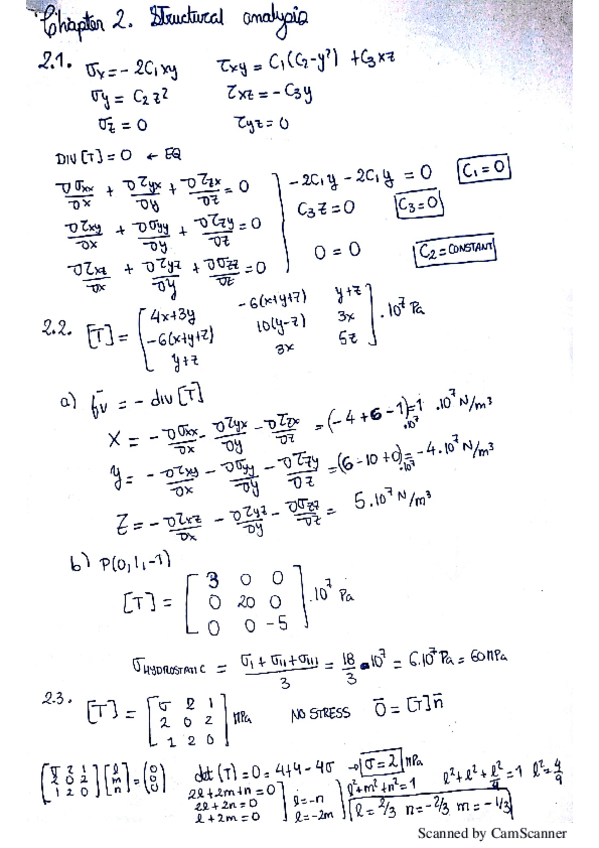 Chapter 2. Structural analysis
2.1. σx = - 2C₁xy τxy = C₁(C₂-y²) + C₃xz
σy = C₂z² τxz = - C₃y
σz = 0 τyz = 0
DIV [T] = 0 ← EQ
∂σxx/∂x + ∂τyx/∂y + ∂τzx/∂z = 0 - 2C₁y - 2C₁y = 0 C₁ = 0
∂τxy/∂x + ∂σyy/∂y + ∂τzy/∂z = 0 C₃z = 0 C₃ = 0
∂τxz/∂x + ∂τyz/∂y + ∂σzz/∂z = 0 0 = 0 C₂ = CONSTANT
2.2. [T] = [ 4x+3y -6(x+y+z) y+z
-6(x+y+z) 10(y-z) 3x
y+z 3x 5z ] . 10⁷ Pa
a) f̄v = - div [T]
X = - ∂σxx/∂x - ∂τyx/∂y - ∂τzx/∂z = (-4+6-1) = 1 .10⁷ N/m³
.10⁷
Y = - ∂τxy/∂x - ∂σyy/∂y - ∂τzy/∂z = (6-10+0) = -4.10⁷ N/m³
.10⁷
Z = - ∂τxz/∂x - ∂τyz/∂y - ∂σzz/∂z = 5.10⁷ N/m³
b) P(0,1,-1)
[T] = [ 3 0 0
0 20 0
0 0 -5 ] .10⁷ Pa
σHYDROSTATIC = (σI + σII + σIII)/3 = 18/3 . 10⁷ = 6.10⁷ Pa = 60 MPa
2.3. [T] = [ σ 2 1
2 0 2
1 2 0 ] MPa NO STRESS 0̄ = [T] n̄
[ σ 2 1
2 0 2
1 2 0 ] [ l m n ] = (0 0 0) det (T) = 0 = 4+4-4σ → σ = 2 MPa
2l+2m+n = 0
2l+2n = 0
l+2m = 0
l = -n
l = -2m
l²+m²+n² = 1 l²+l²+l²/4 = 1 l² = 4/9
l = 2/3 n = -2/3 m = -1/3
Scanned by CamScanner